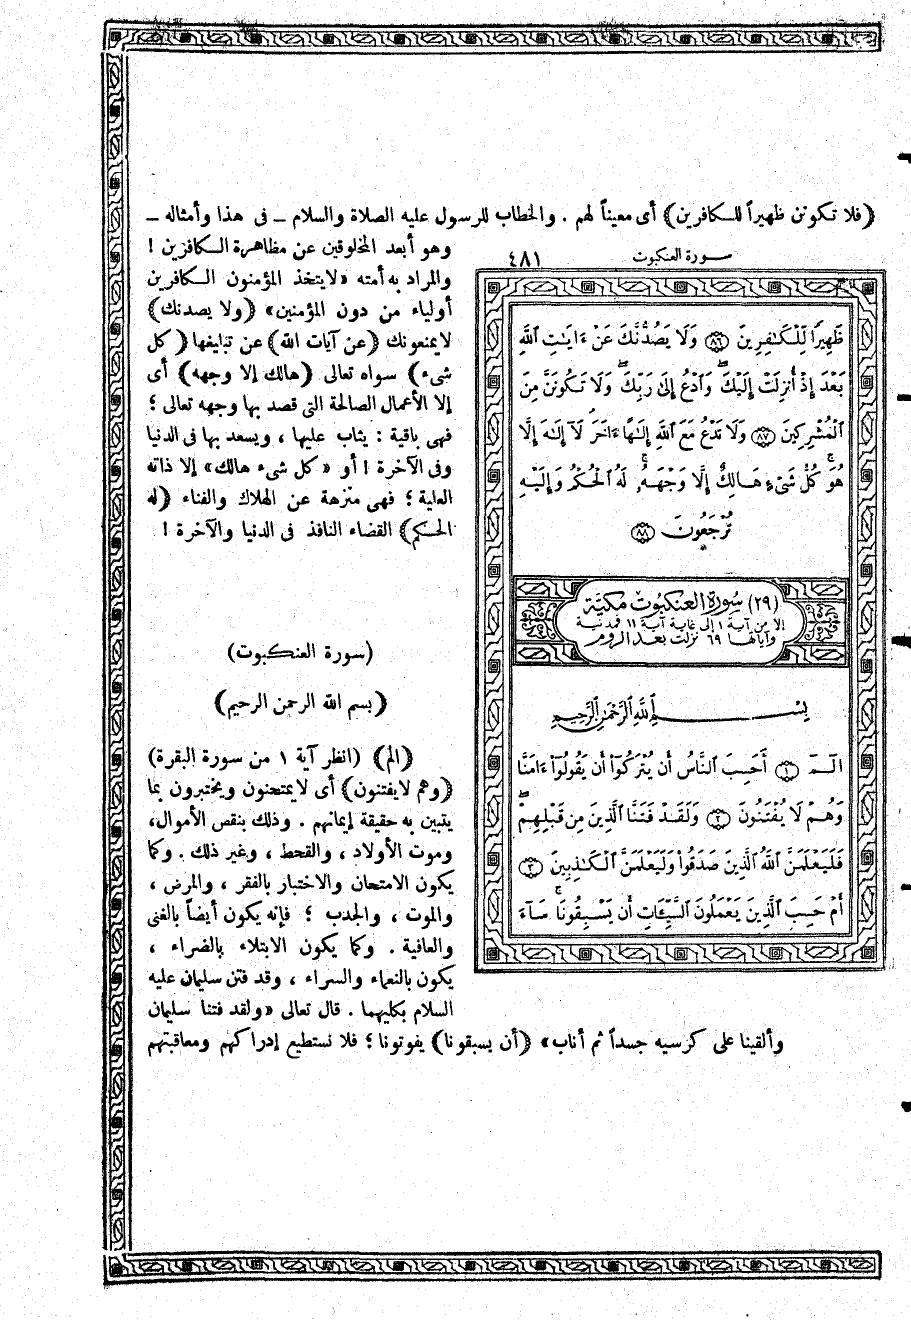 (فلا تكونن ظهيراً للكافرين) أى معيناً لهم . والخطاب للرسول عليه الصلاة والسلام ــ فى هذا وأمثاله ــ
وهو أبعد المخلوقين عن مظاهرة الكافرين !
والمراد به أمته «لايتخذ المؤمنون الكافرين
أولياء من دون المؤمنين» (ولا يصدنك)
لايمنعونك (عن آيات الله) عن تبليغها (كل
شىء) سواه تعالى (هالك إلا وجهه) أى
إلا الأعمال الصالحة التى قصد بها وجهه تعالى ؛
فهى باقية : يثاب عليها ، ويسعد بها فى الدنيا
وفى الآخرة ! أو « كل شىء هالك» إلا ذاته
العلية ؛ فهى منزهة عن الهلاك والفناء (له
الحكم) القضاء النافذ فى الدنيا والآخرة !
(سورة العنكبوت)
(بسم الله الرحمن الرحيم)
(الم) (انظر آية ١ من سورة البقرة)
(وهم لايفتنون) أى لايمتحنون ويختبرون بما
يتبين به حقيقة إيمانهم . وذلك بنقص الأموال،
وموت الأولاد ، والقحط ، وغير ذلك . وكما
يكون الامتحان والاختبار بالفقر ، والمرض ،
والموت ، والجدب ؛ فإنه يكون أيضاً بالغنى
والعافية . وكما يكون الابتلاء بالضراء ،
يكون بالنعماء والسراء ، وقد فتن سليمان عليه
السلام بكليهما . قال تعالى «ولقد فتنا سليمان
وألقينا على كرسيه جسداً ثم أناب» (أن يسبقونا) يفوتونا ؛ فلا نستطيع إدراكهم ومعاقبتهم
سورة العنكبوت ٤٨١
ظَهِيرًا لِّلْكَٰفِرِينَ ٨٦ وَلَا يَصُدُّنَّكَ عَنْ ءَايَٰتِ ٱللَّهِ
بَعْدَ إِذْ أُنزِلَتْ إِلَيْكَ ۖ وَٱدْعُ إِلَىٰ رَبِّكَ ۖ وَلَا تَكُونَنَّ مِنَ
ٱلْمُشْرِكِينَ ٨٧ وَلَا تَدْعُ مَعَ ٱللَّهِ إِلَٰهًا ءَاخَرَ ۘ لَآ إِلَٰهَ إِلَّا
هُوَ ۚ كُلُّ شَىْءٍ هَالِكٌ إِلَّا وَجْهَهُۥ ۚ لَهُ ٱلْحُكْمُ وَإِلَيْهِ
تُرْجَعُونَ ٨٨
(٢٩) سورة العنكبوت مكية
إلا من آية ١ إلى غاية آية ١١ فمدنية
وآياتها ٦٩ نزلت بعد الروم
بِسْمِ ٱللَّهِ ٱلرَّحْمَٰنِ ٱلرَّحِيمِ
الٓمٓ ١ أَحَسِبَ ٱلنَّاسُ أَن يُتْرَكُوٓا۟ أَن يَقُولُوٓا۟ ءَامَنَّا
وَهُمْ لَا يُفْتَنُونَ ٢ وَلَقَدْ فَتَنَّا ٱلَّذِينَ مِن قَبْلِهِمْ ۖ
فَلَيَعْلَمَنَّ ٱللَّهُ ٱلَّذِينَ صَدَقُوا۟ وَلَيَعْلَمَنَّ ٱلْكَٰذِبِينَ ٣
أَمْ حَسِبَ ٱلَّذِينَ يَعْمَلُونَ ٱلسَّيِّـَٔاتِ أَن يَسْبِقُونَا ۚ سَآءَ